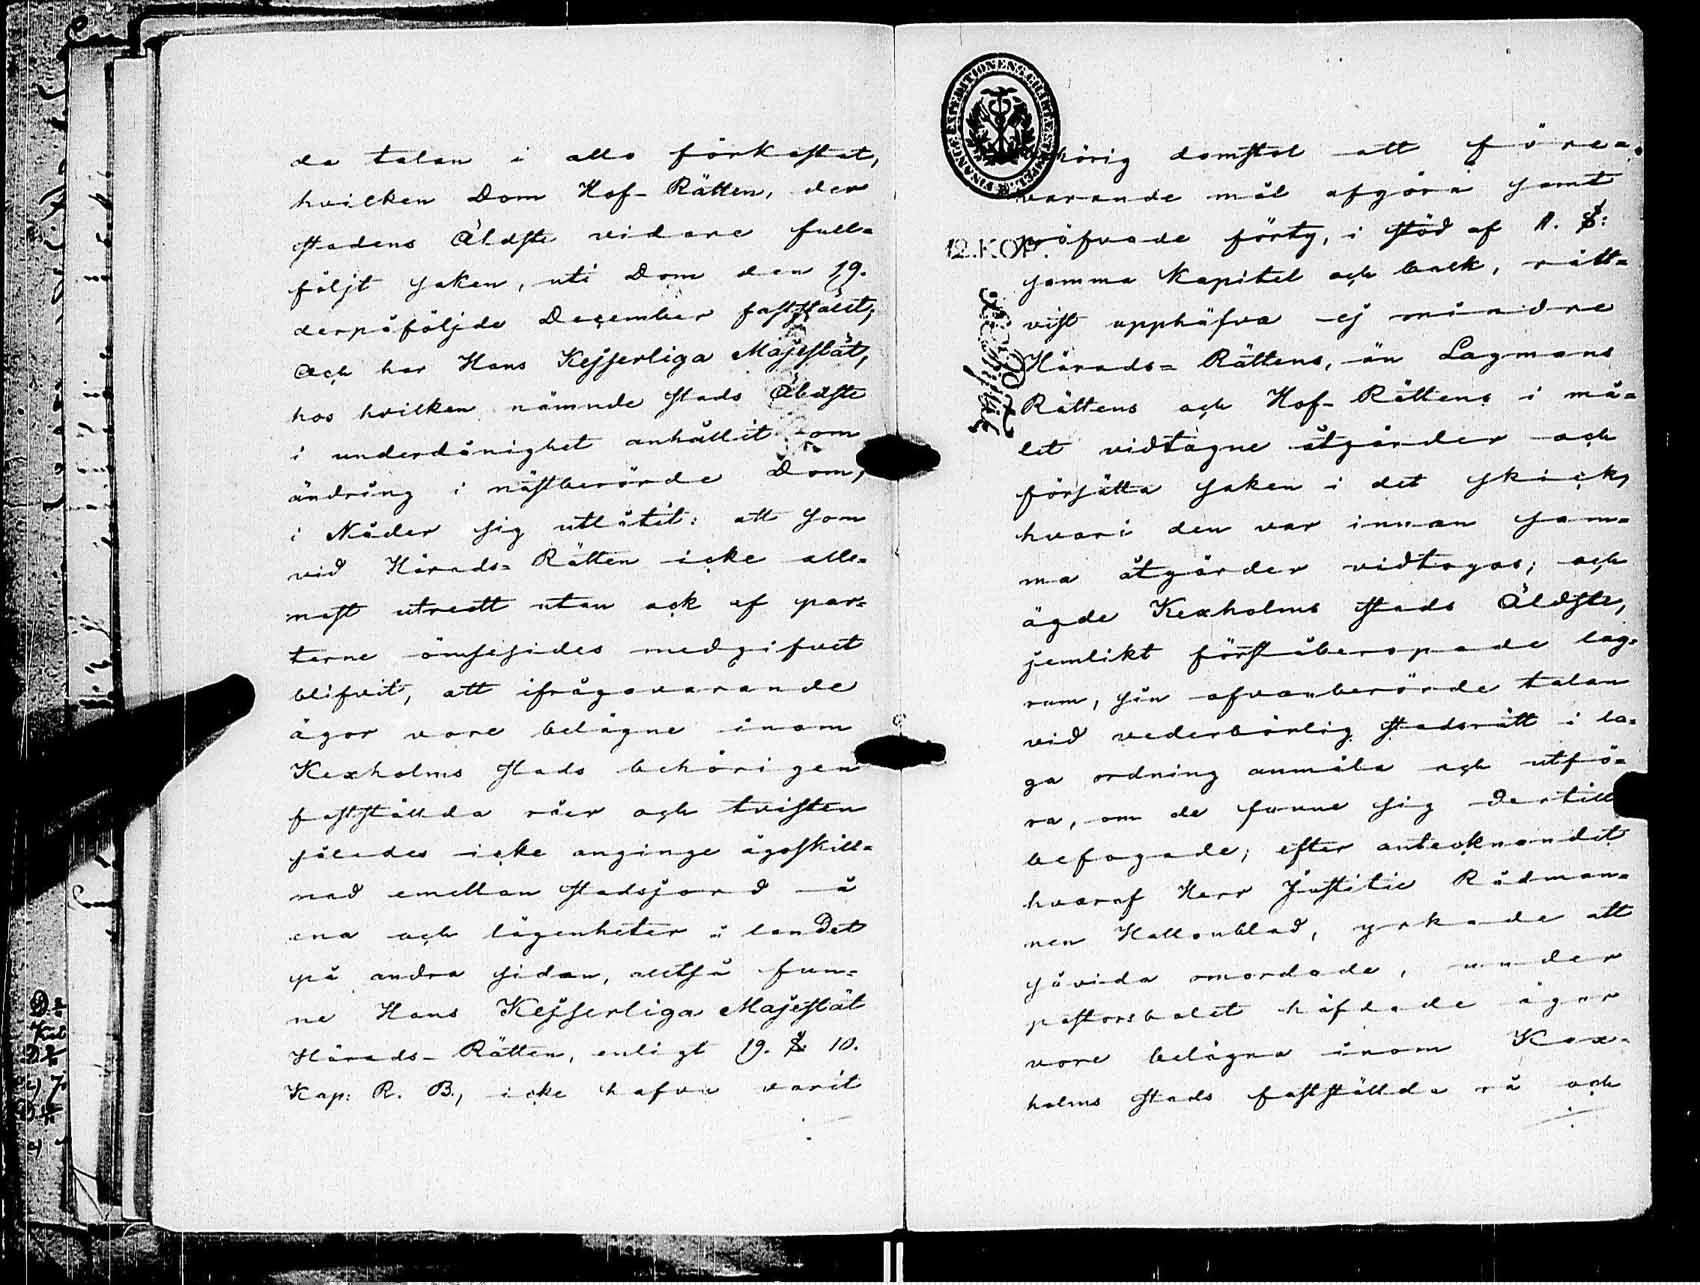 da talan i allo förkastat,
hvilken Dom Hof-Rätten, der
stadens Äldste vidare full=
följt saken, uti Dom den 19.
derpåföljde December faststält;
Och har Hans Kejserliga Majestät,
hos hvilken nämnde stads Äldste
i underdånighet anhållit om
ändring i nästberörde Dom,
i Nåder sig utlåtit: att som
vid Härads=Rätten icke alle=
nast utredt utan ock af par=
terne ömsesides medgifvet
blifvit, att ifrågavarande
ägor vore belägne inom
Kexholms stads behörigen
fastställda råer och tvisten
således icke anginge ägoskill=
nad emellan stadsjord å
ena och lägenheter å landet
på andra sidan, alltså fun=
ne Hans Kejserliga Majestät
Härads-Rätten, enligt 19. § 10.
Kap: R. B., icke hafva varit
behörig domstol att före=
varande mål afgöra samt
pröfvade förty, i stöd af 11. §:
samma Kapitel och balk, rätt=
vist upphäfva ej mindre
Härads=Rättens, än Lagmans
Rättens och Hof-Rättens i må=
let vidtagne åtgärder och
försätta saken i det skick,
hvari den var innan sam=
ma åtgärder vidtogos; och
ägde Kexholms stads Äldste,
jemlikt förståberopade lag=
rum, sin ofvanberörde talan
vid vederbörlig stadsrätt i la=
ga ordning anmäla och utfö=
ra, om de funne sig dertill
befogade; efter antecknandet
hvaraf Herr Justitie Rådman=
nen Hallonblad, yrkade att
såvida omordade, under
pastorsbolet häfdade ägor
vore belägna inom Kex=
holms stads fastställda rå och
FINANCE EXPEDITIONENS
12.KOP.